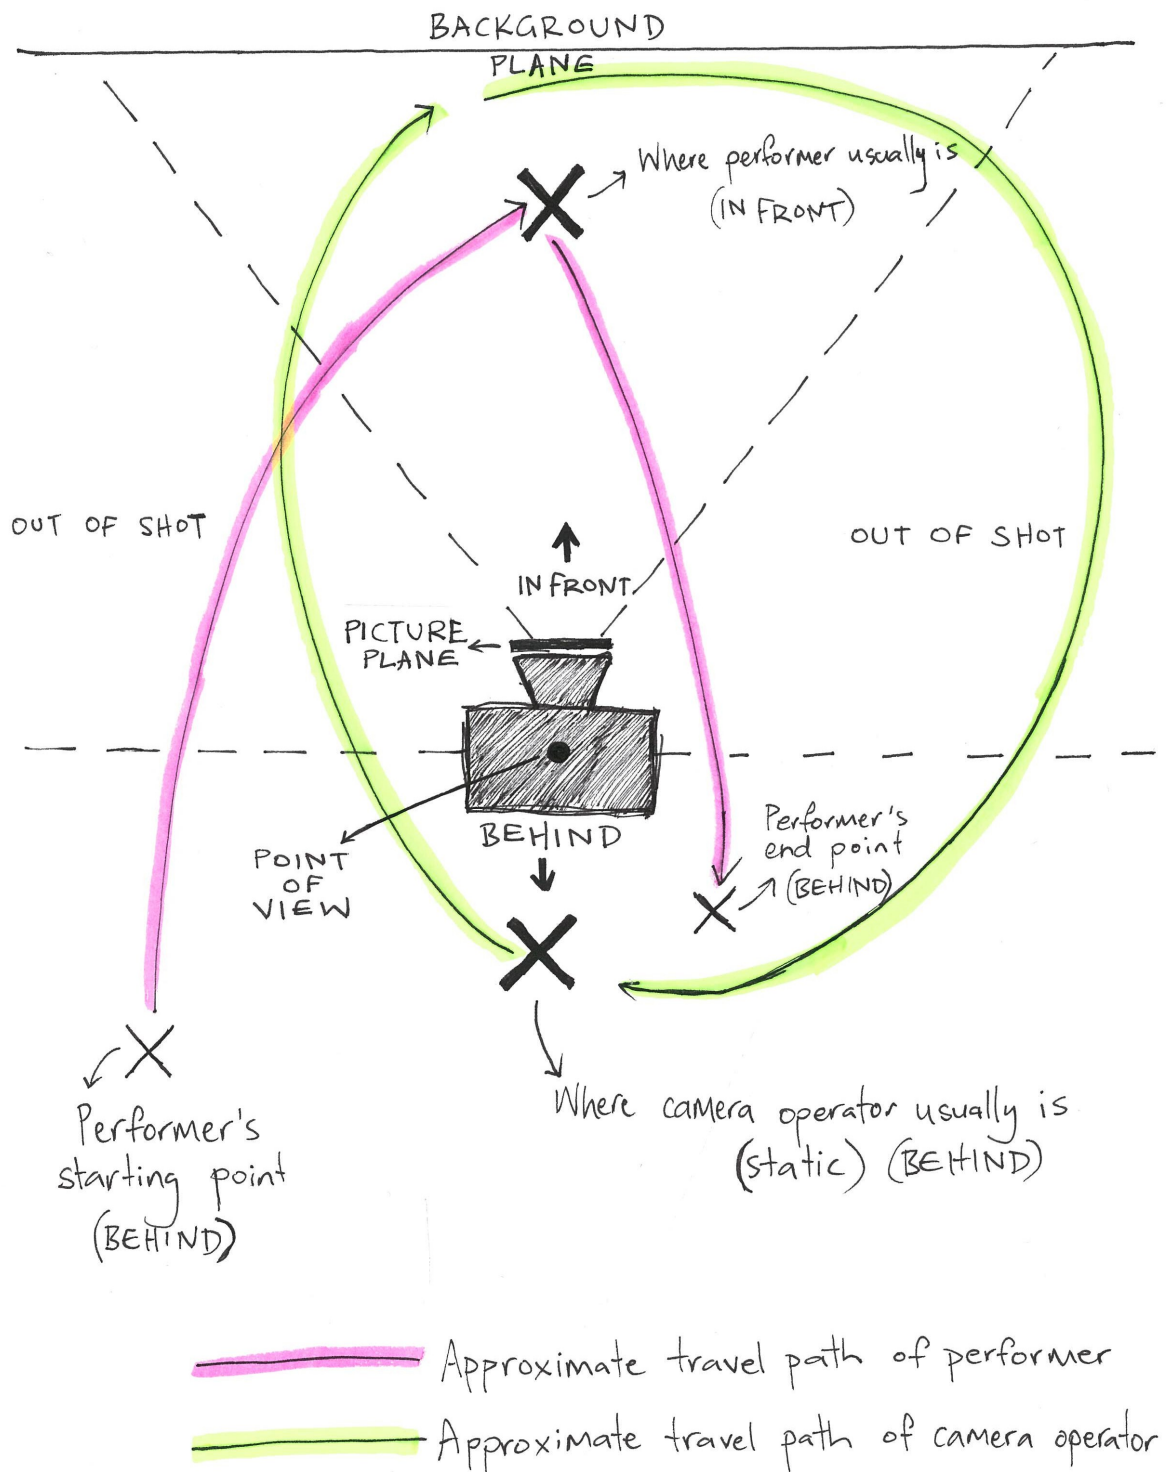 BACKGROUND
PLANE
Where performer usually is
(IN FRONT)
OUT OF SHOT
OUT OF SHOT
IN FRONT
PICTURE
PLANE
BEHIND
POINT
OF
VIEW
Performer's
end point
(BEHIND)
Where camera operator usually is
(static) (BEHIND)
Performer's
starting point
(BEHIND)
Approximate travel path of performer
Approximate travel path of camera operator